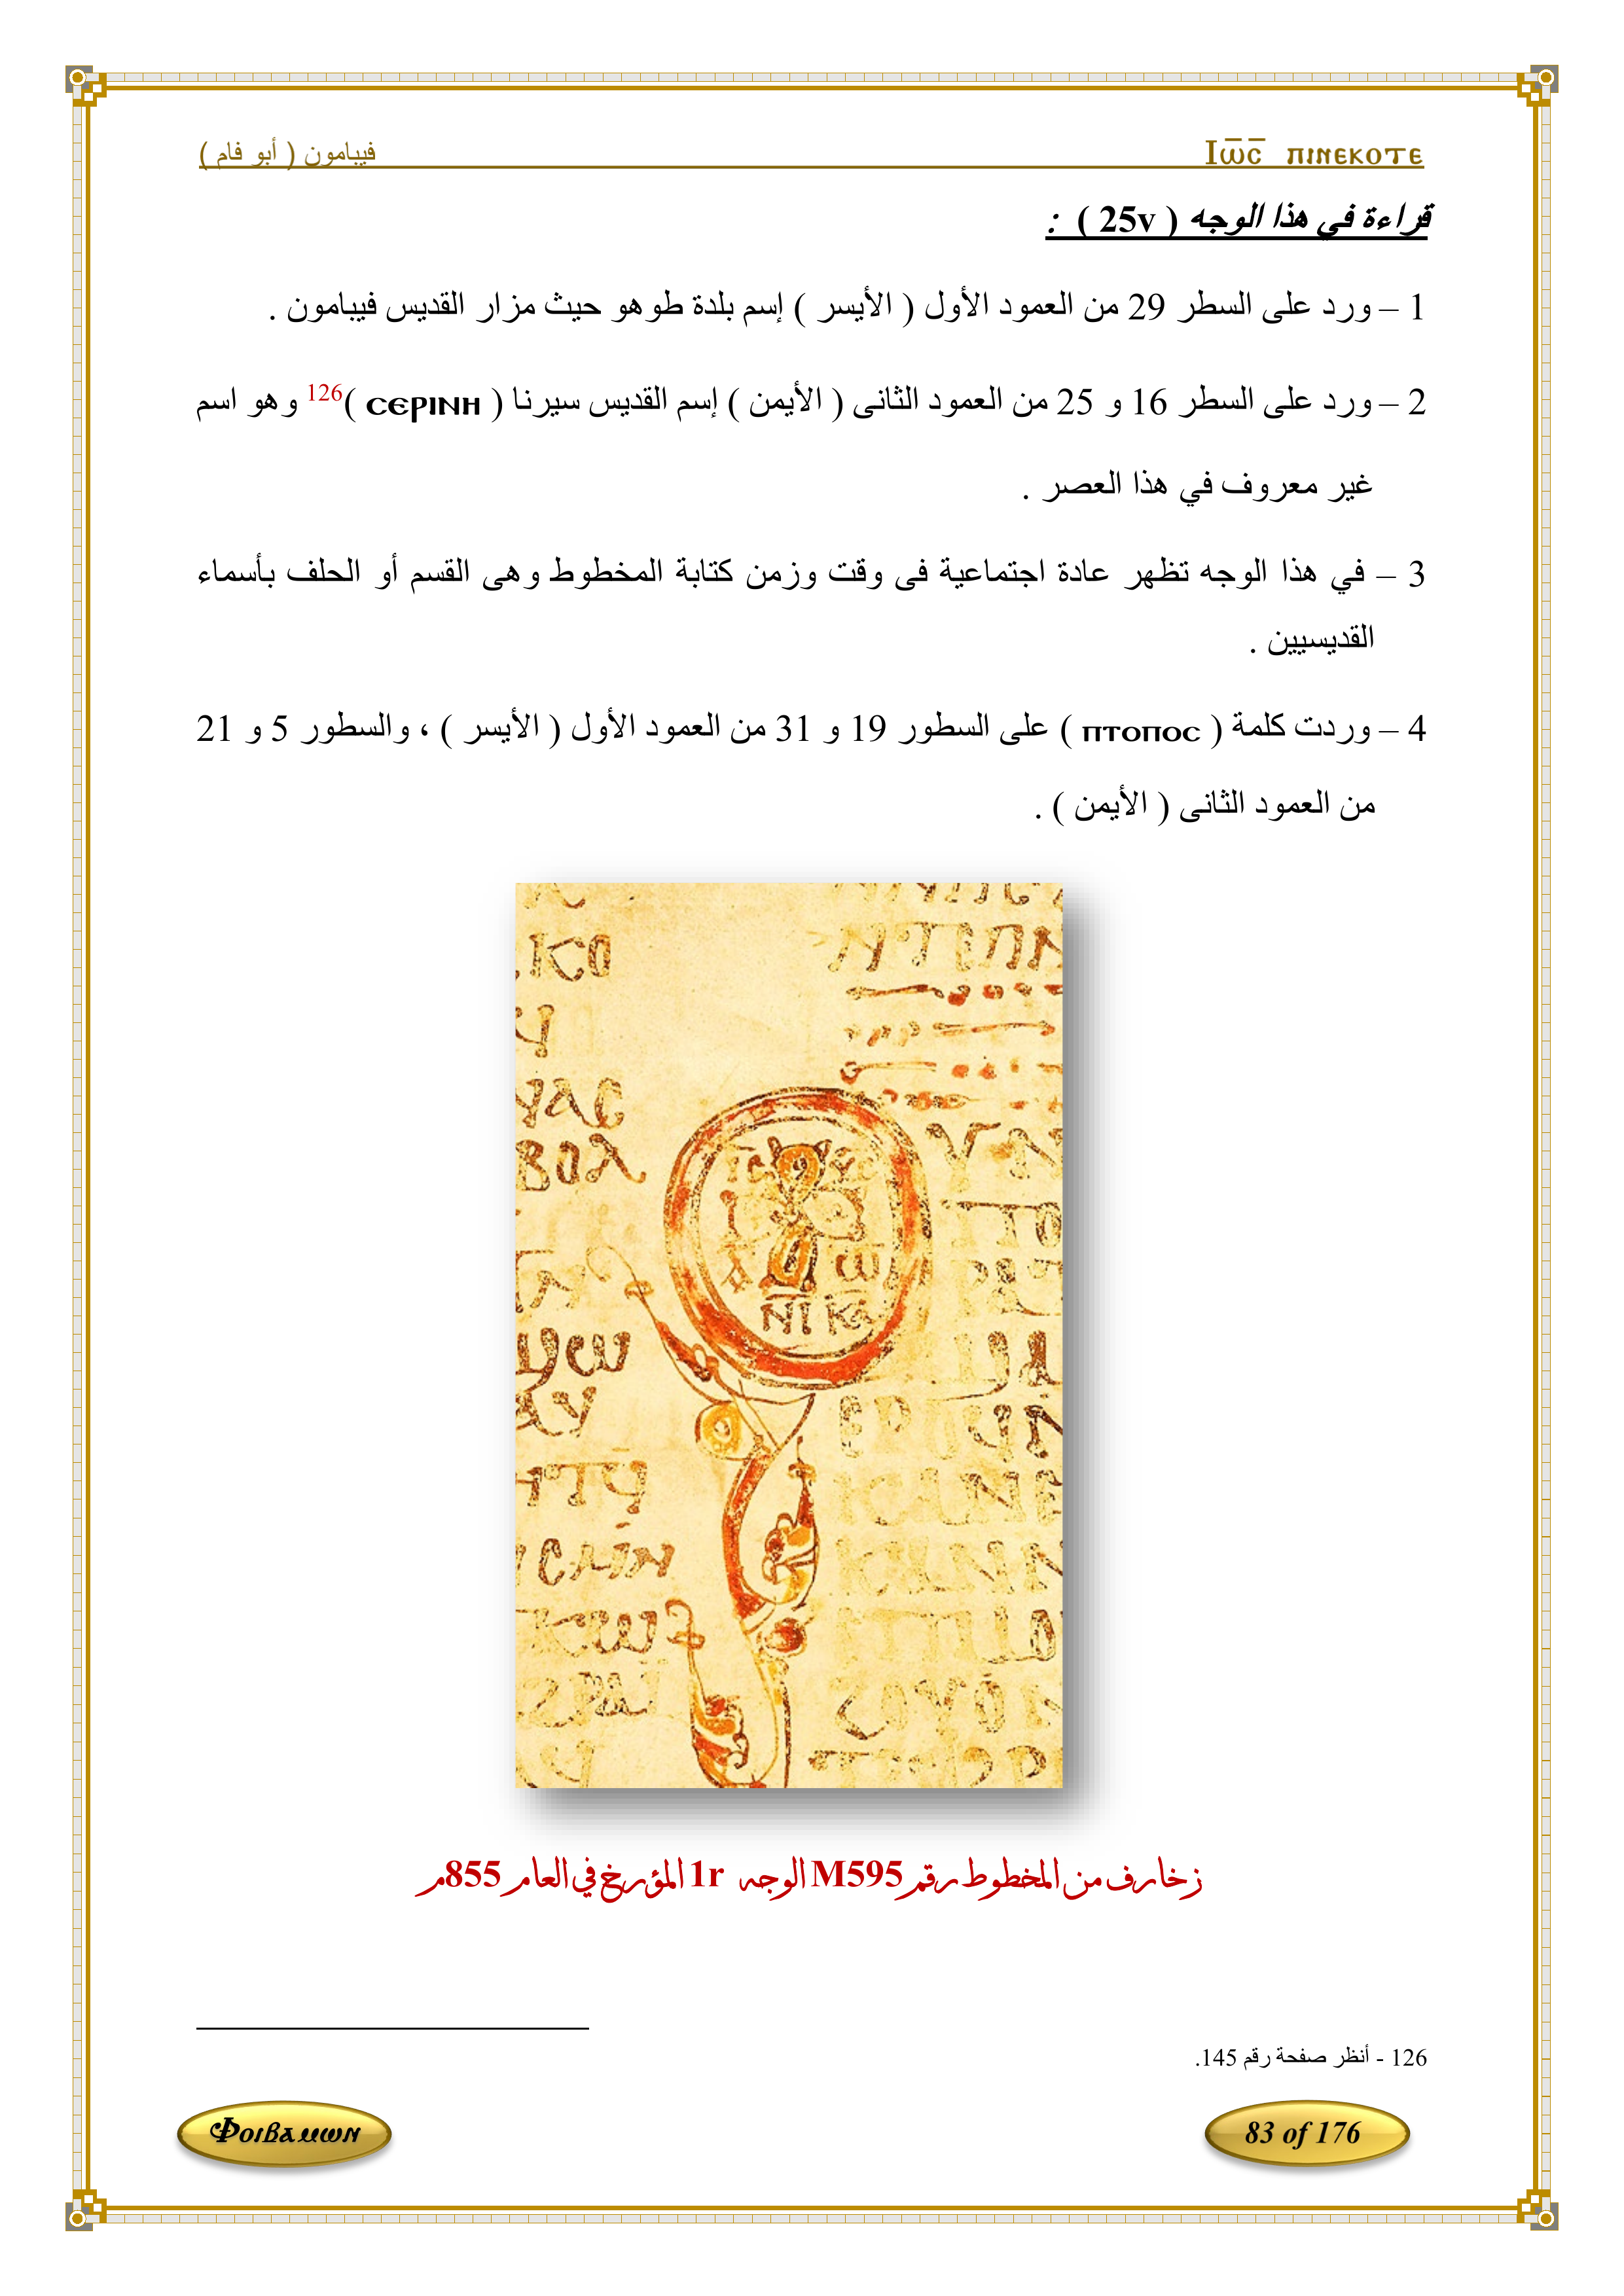 Ⲓⲱ̅ⲥ̅ ⲡⲓⲛⲉⲕⲟⲧⲉ
فيبامون ( أبو فام )
قراءة في هذا الوجه ( 25v ) :
1 – ورد على السطر 29 من العمود الأول ( الأيسر ) إسم بلدة طوهو حيث مزار القديس فيبامون .
2 – ورد على السطر 16 و 25 من العمود الثانى ( الأيمن ) إسم القديس سيرنا ( ⲥⲉⲣⲓⲛⲏ )126 وهو اسم
غير معروف في هذا العصر .
3 – في هذا الوجه تظهر عادة اجتماعية فى وقت وزمن كتابة المخطوط وهى القسم أو الحلف بأسماء
القديسيين .
4 – وردت كلمة ( ⲡⲧⲟⲡⲟⲥ ) على السطور 19 و 31 من العمود الأول ( الأيسر ) ، والسطور 5 و 21
من العمود الثانى ( الأيمن ) .
زخارف من المخطوط رقم M595 الوجه 1r المؤرخ في العام 855م
126 - أنظر صفحة رقم 145.
Ⲫⲟⲓⲃⲁⲙⲱⲛ
83 of 176